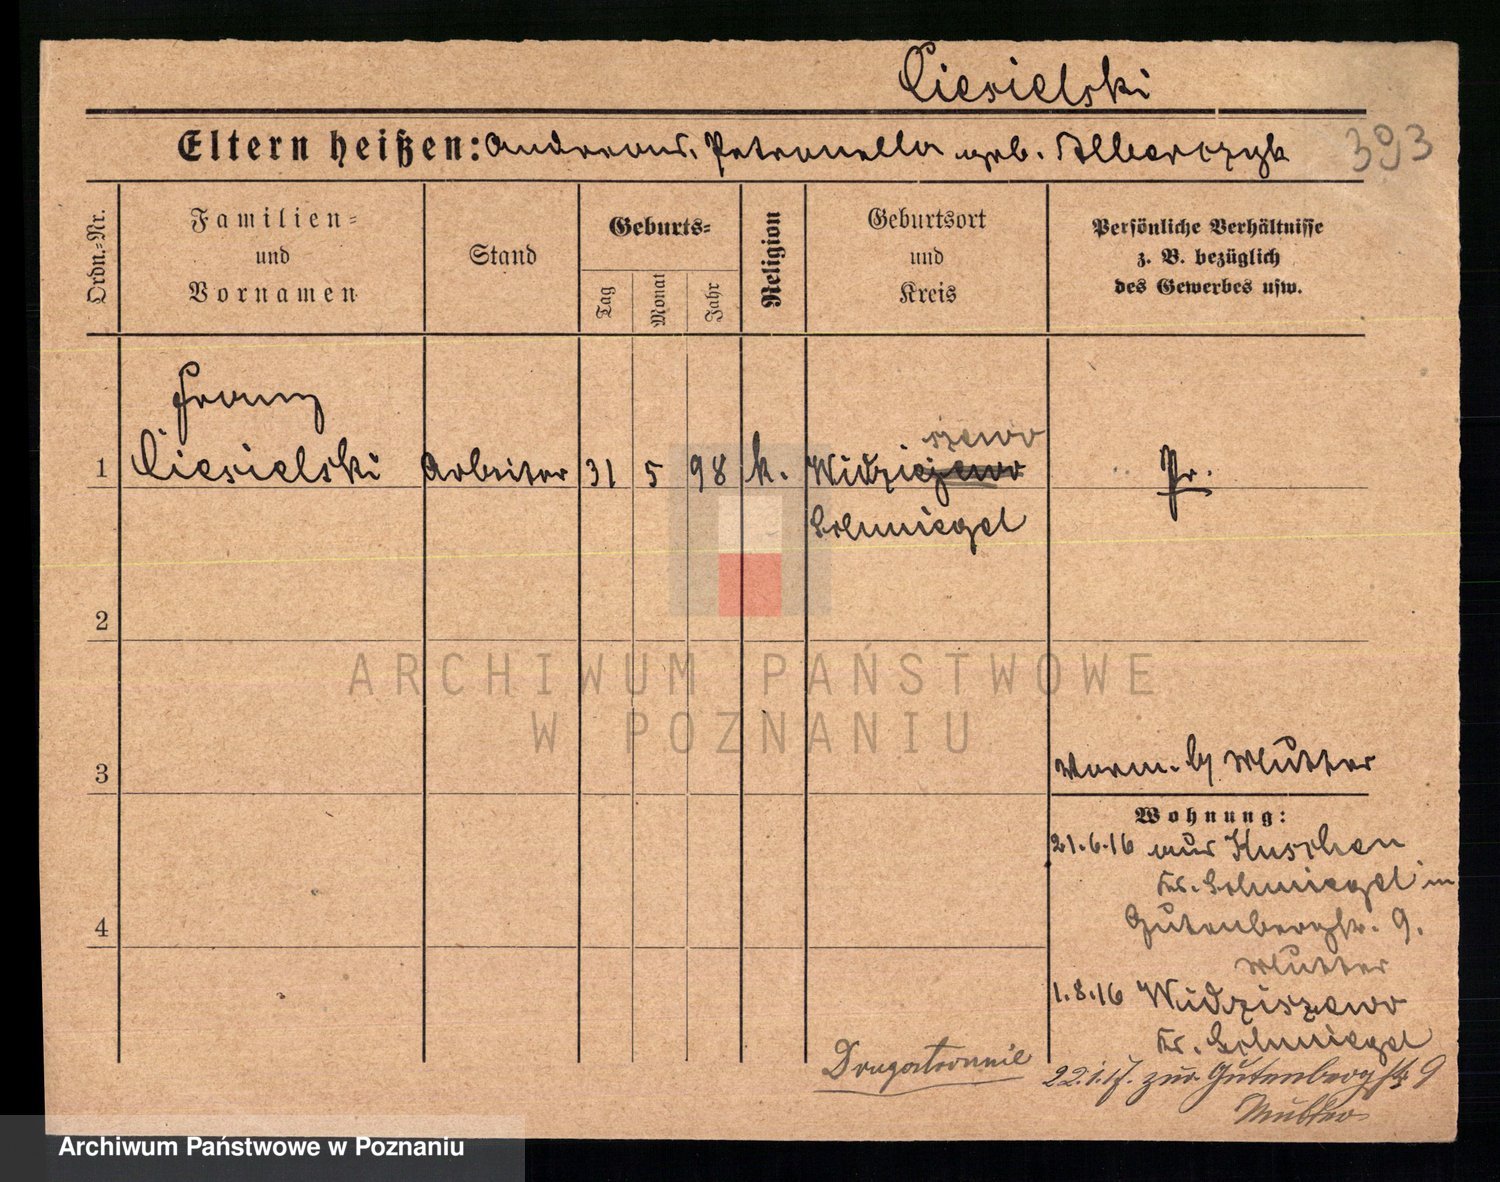 Ciesielski
Eltern heißen: Andreas, Petronella geb. Alberczyk
393
Ordn.=Nr.
Familien=
und
Vornamen
Stand
Geburts=
Tag
Monat
Jahr
Religion
Geburtsort
und
Kreis
Persönliche Verhältnisse
z. B. bezüglich
des Gewerbes usw.
Franz
szewo
1 Ciesielski Arbeiter 31 5 98 k. Widziezewo Pr.
Schmiegel
2
ARCHIWUM PAŃSTWOWE
W POZNANIU
3
Worm. b/ Mutter
Wohnung:
21.6.16 aus Kuschen
Kr. Schmiegel in
4
Gutenbergstr. 9.
Mutter
1.8.16 Widziszewo
Kr. Schmiegel
Drugatronnie
22.1.17. zur. Gutenbergstr 9
Mutter
Archiwum Państwowe w Poznaniu